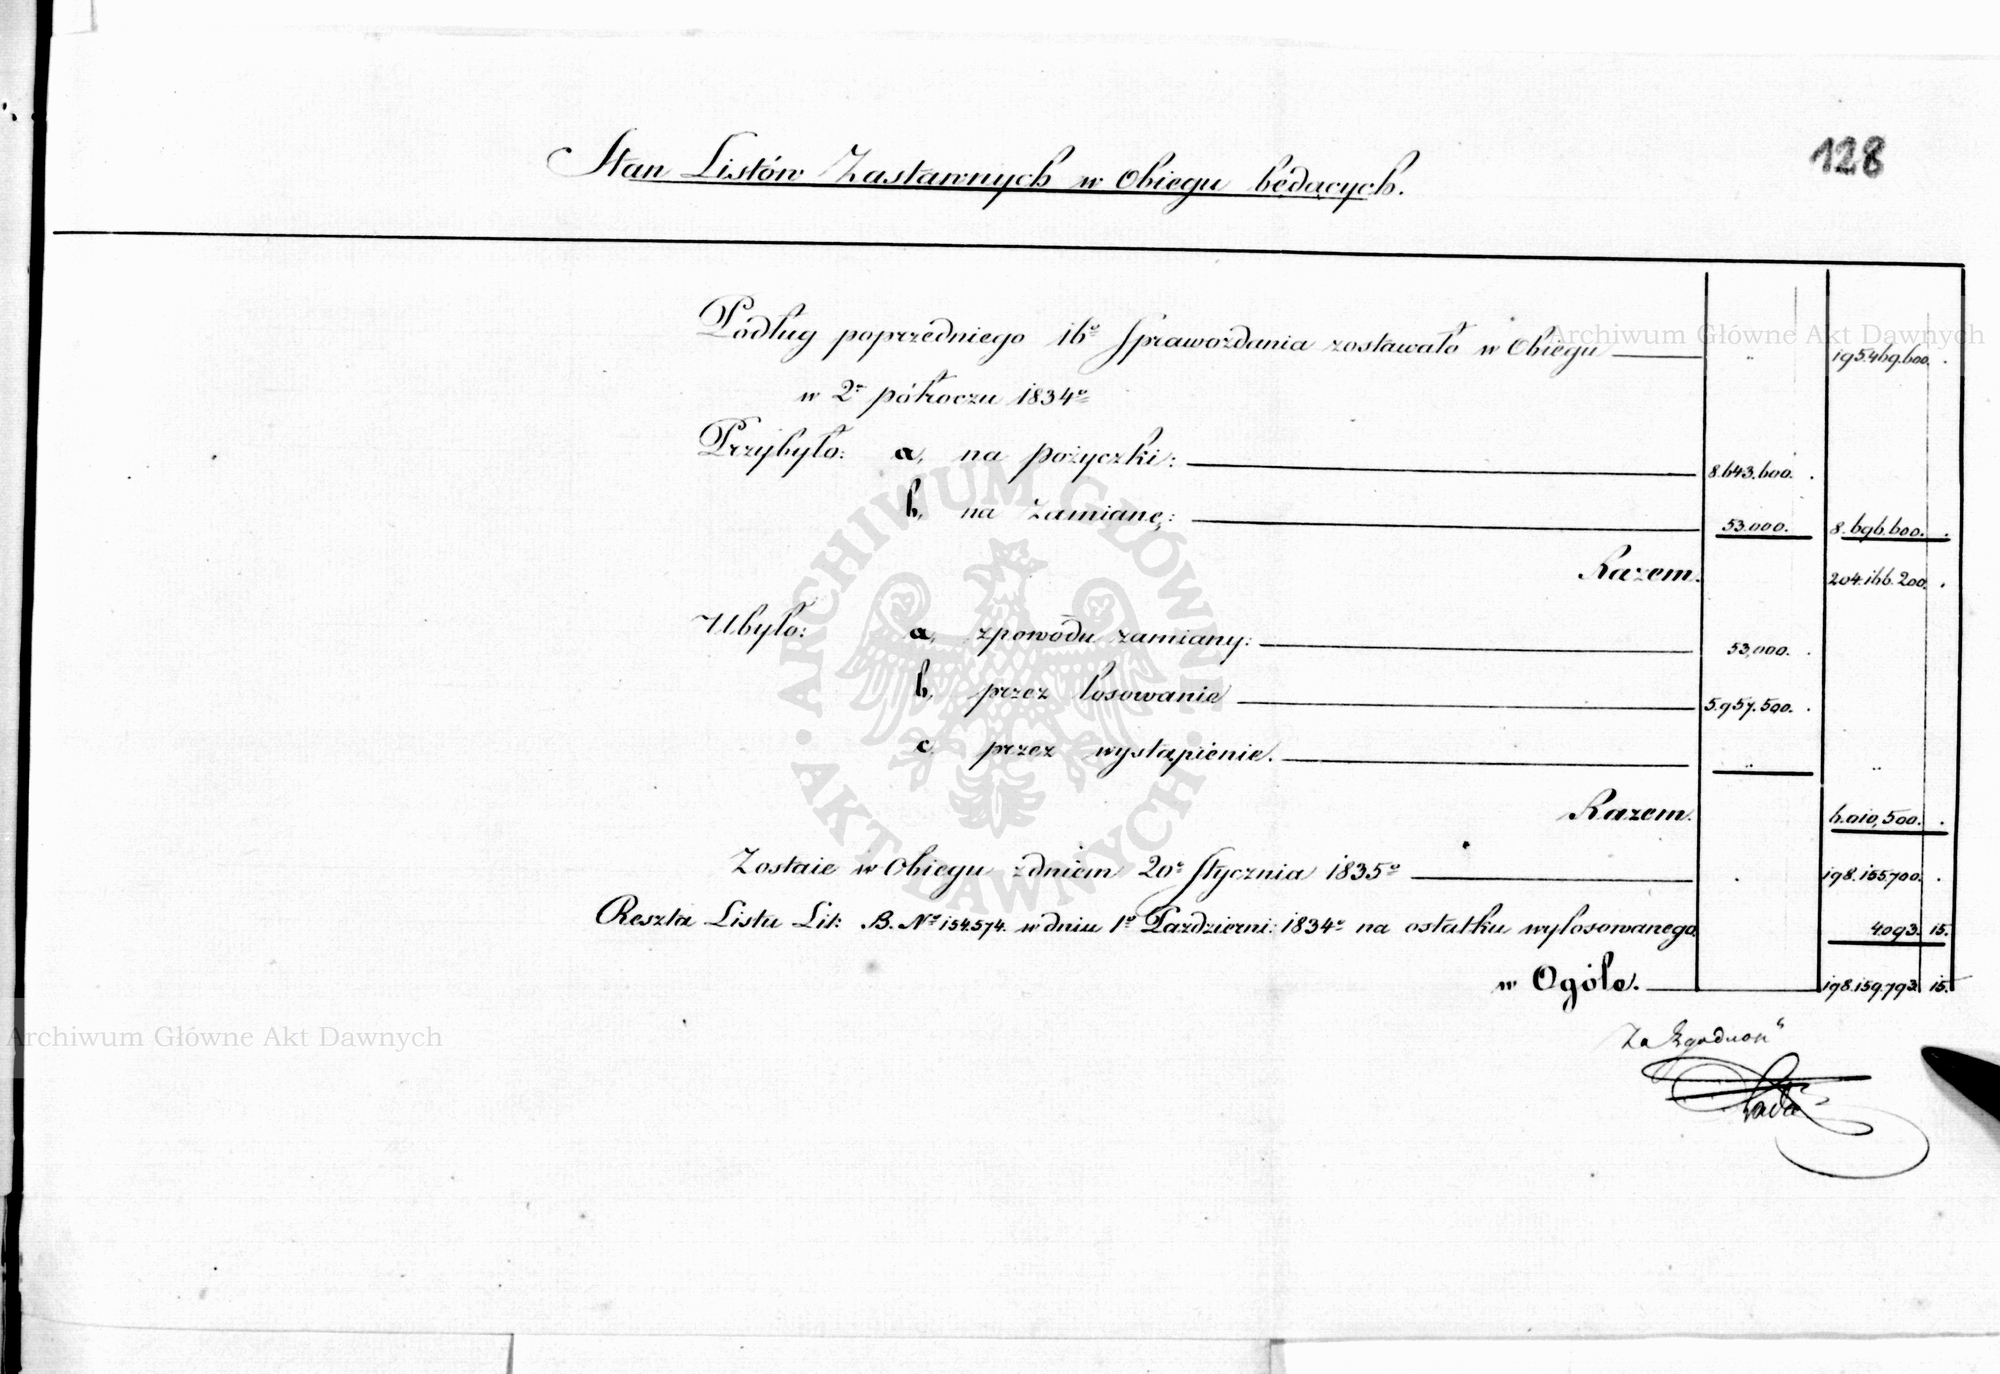 128
Stan Listów Zastawnych w Obiegu będących.
Podług poprzedniego 16º Sprawozdania zostawało w Obiegu 195.469.600.
w 2m półroczu 1834º
Przybyło: a, na pożyczki: 8.643.600.
b, na Zamianę: 53.000. 8.696.600.
Razem. 204.166.200.
Ubyło: a, zpowodu zamiany: 53,000.
b, przez losowanie 5.957.500.
c, przez wystąpienie.
Razem. 6.010,500.
Zostaie w Obiegu z dniem 20º Stycznia 1835º 198.155.700.
Reszta Listu Lit: B. Nº 154.574. w dniu 1º Październi: 1834º na ostatku wylosowanego 4.093. 15.
w Ogóle. 198.159.793. 15.
Za Zgodność
Archiwum Główne Akt Dawnych
Archiwum Główne Akt Dawnych
ARCHIWUM GŁÓWNE AKT DAWNYCH